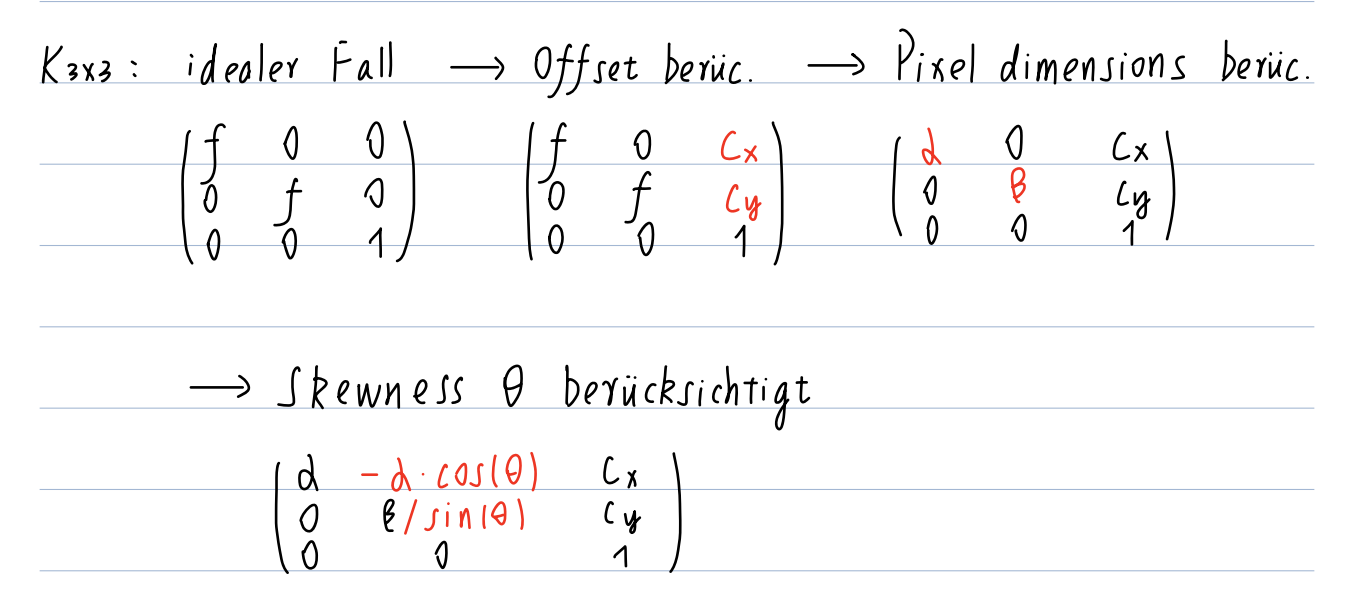 K₃ₓ₃ : idealer Fall → Offset berüc. → Pixel dimensions berüc.
( f 0 0 ) ( f 0 Cx ) ( α 0 Cx )
( 0 f 0 ) ( 0 f Cy ) ( 0 β Cy )
( 0 0 1 ) ( 0 0 1 ) ( 0 0 1 )
→ Skewness θ berücksichtigt
( α -α·cos(θ) Cx )
( 0 β/sin(θ) Cy )
( 0 0 1 )